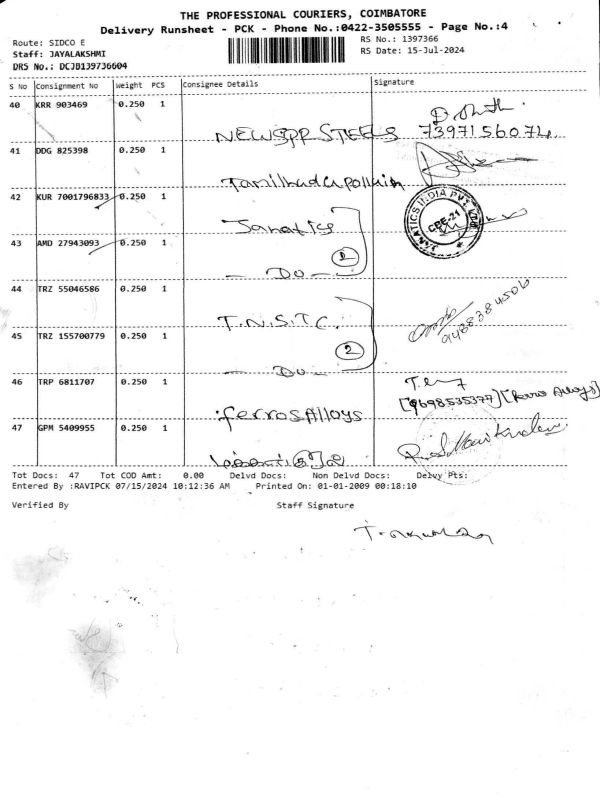 THE PROFESSIONAL COURIERS, COIMBATORE
Delivery Runsheet - PCK - Phone No.:0422-3505555 - Page No.:4
Route: SIDCO E
RS No.: 1397366
Staff: JAYALAKSHMI
RS Date: 15-Jul-2024
DRS No.: DCJD139736604
S No Consignment No Weight PCS Consignee Details Signature
40 KRR 903469 0.250 1
NEWSPP STEELS 7397156074
41 DDG 825398 0.250 1
Tamilnadu pollution
42 KUR 7001796833 0.250 1
Janatics
JANATICS INDIA PVT. LTD.
CBE-21
43 AMD 27943093 0.250 1
- Do - 2
44 TRZ 55046586 0.250 1
T.N.S.T.C. 9488384506
45 TRZ 155700779 0.250 1
- Do - 2
46 TRP 6811707 0.250 1
ferrosAlloys [9698535377] [ferro Alloys]
47 GPM 5409955 0.250 1
Tot Docs: 47 Tot COD Amt: 0.00 Delvd Docs: Non Delvd Docs: Delvy Pts:
Entered By :RAVIPCK 07/15/2024 10:12:36 AM Printed On: 01-01-2009 00:18:10
Verified By Staff Signature